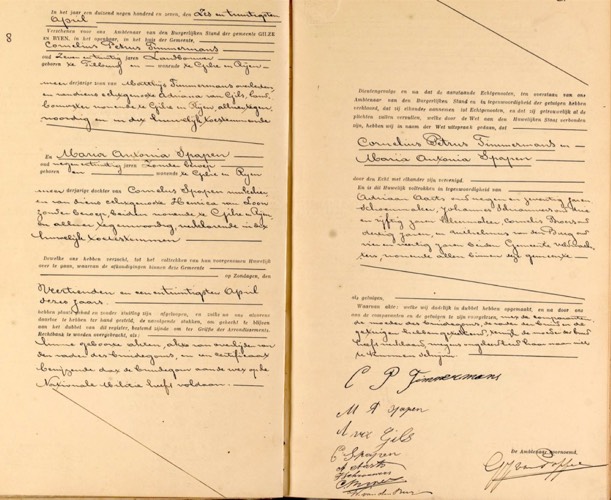 8
In het jaar een duizend negen hondered en zeven, den Zes en twintigsten
April
Verschenen voor ons Ambtenaar van den Burgerlijken Stand der gemeente GILZE
en RYEN, in het openbaar, in het huis der Gemeente,
Cornelius Petrus Timmermans
oud Zeven en twintig jaren Landbouwer
geboren te Tilburg en wonende te Gilze en Rijen
meerderjarige zoon van Matthijs Timmermans overleden
en van diens echtgenoote Adriana van Gils,
wonende te Gilze en Rijen alhier tegen-
woordig en in dit huwelijk toestemmende
En Maria Antonia Spapen
oud negen en twintig jaren Zonder beroep
geboren en wonende te Gilze en Rijen
meerderjarige dochter van Cornelius Spapen
en van diens echtgenoote Henrica van Loon
zonder beroep, beiden wonende te Gilze en Rijen
en alhier tegenwoordig, verklarende in dit
huwelijk toe te stemmen
Dewelke ons hebben verzocht, tot het voltrekken van hun voorgenomen Huwelijk
over te gaan, waarvan de afkondigingen binnen deze Gemeente
op Zondagen, den
Veertienden en een en twintigsten April
dezes jaars.
hebben plaats gehad en zonder stuiting zijn afgeloopen, en zulks na ons alvorens
daartoe te hebben ter hand gesteld, de navolgende stukken, om gehecht te blijven
aan het dubbel van dit register, bestemd zijnde om ter Griffie der Arrondissements-
Rechtbank te worden overgebracht, als:
hunne geboorte akten, akte van overlijden van
den vader des bruidegoms, en certificaat
bewijzende dat de bruidegom aan de wet op de
Nationale Militie heeft voldaan
Dientengevolge en na dat de aanstaande Echtgenooten, ten overstaan van ons
Ambtenaar van den Burgerlijken Stand en in tegenwoordigheid der getuigen hebben
verklaard, dat zij elkander aannemen tot Echtgenooten, en dat zij getrouwelijk al de
plichten zullen vervullen, welke door de Wet aan den Huwelijken Staat verbonden
zijn, hebben wij in naam der Wet uitspraak gedaan, dat
Cornelius Petrus Timmermans en
Maria Antonia Spapen
door den Echt met elkander zijn vereenigd.
En is dit Huwelijk voltrokken in tegenwoordigheid van
Adriaan Aarts oud negen en twintig jaren
Schoenmaker, Johannes Schrauwers oud
en vijftig jaren Kleermaker, Cornelis
dertig jaren, en van den Burg oud
vier en veertig jaren beiden Gemeente
wonende allen binnen dezer gemeente
als getuigen.
Waarvan akte: welke wij dadelijk in dubbel hebben opgemaakt, en na door ons
aan de comparanten en de getuigen te zijn voorgelezen, met de comparanten
de moeder des bruidegoms, de vader der bruid en de
getuigen hebben geteekend, terwijl de moeder der bruid
heeft verklaard, wegens ongeleerdheid haar naam niet
te kunnen schrijven
C P Timmermans
M A Spapen
A van Gils
C Spapen
A Aarts
Schrauwers
De Ambtenaar voornoemd,